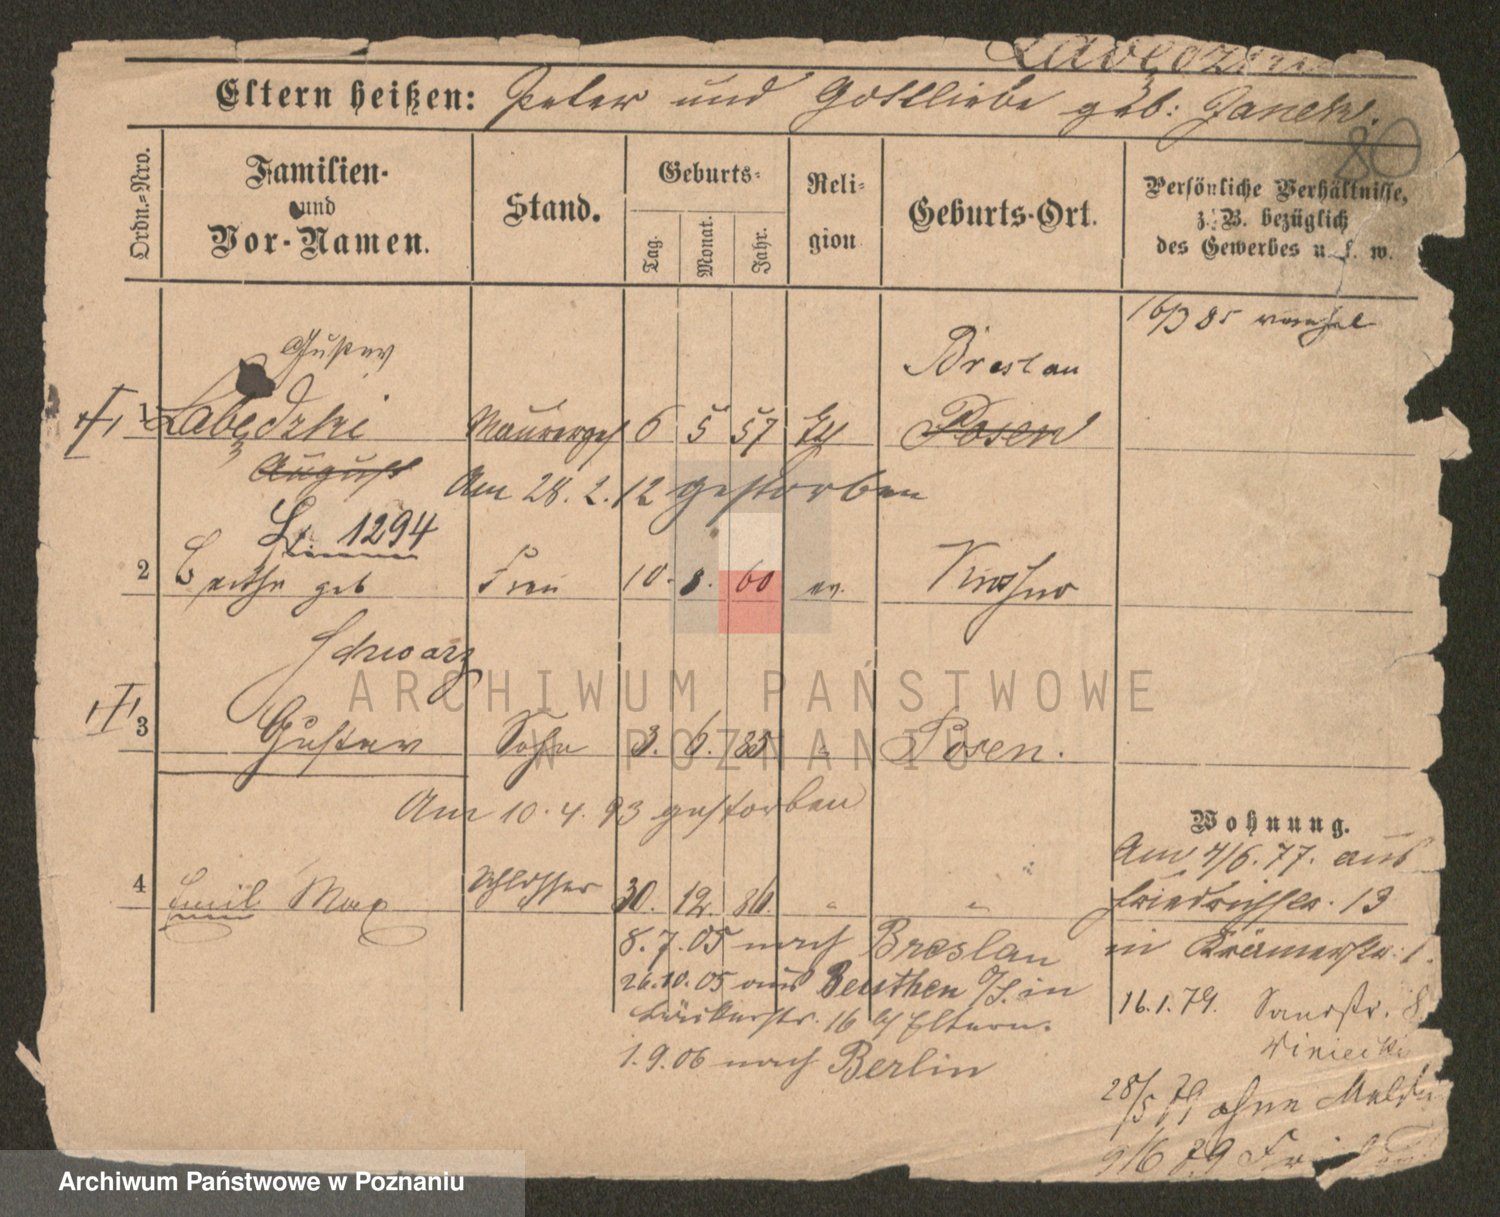 Eltern heißen: Peter und Gottliebe geb: Janek.
80
Ordn.-Nro.
Familien-
und
Vor-Namen.
Stand.
Geburts-
Tag.
Monat.
Jahr.
Reli-
gion
Geburts-Ort.
Persönliche Verhältnisse,
z. B. bezüglich
des Gewerbes u. s. w.
16/3 85
Gustav
Breslau
1 Labędzki Maurerges 6 5 57 Posen
August
Am 28. 2. 12 gestorben
1294
2 geb Frau 10. 8. 60 ev.
Schwarz
3 Gustav Sohn 3. 6. 85 " Posen.
Am 10. 4. 93 gestorben
Wohnung.
Am 4/6. 77. aus
4 Emil Max Schlosser 30. 12. 86. " "
Friedrichstr. 13
8. 7. 05 nach Breslau
in Krämerstr. 1.
26.10. 05 aus Beuthen O/S. in
16 b/ Eltern.
16. 1. 79. Sandstr. 8
Winiecki
1. 9. 06 nach Berlin
28/5 79 ohne
9/6 79
ARCHIWUM PAŃSTWOWE
W POZNANIU
Archiwum Państwowe w Poznaniu